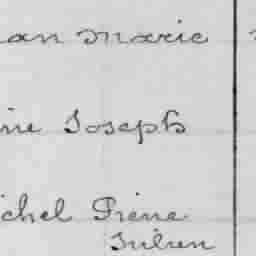 an Marie
ine Joseph
ichel Pierre
Julien